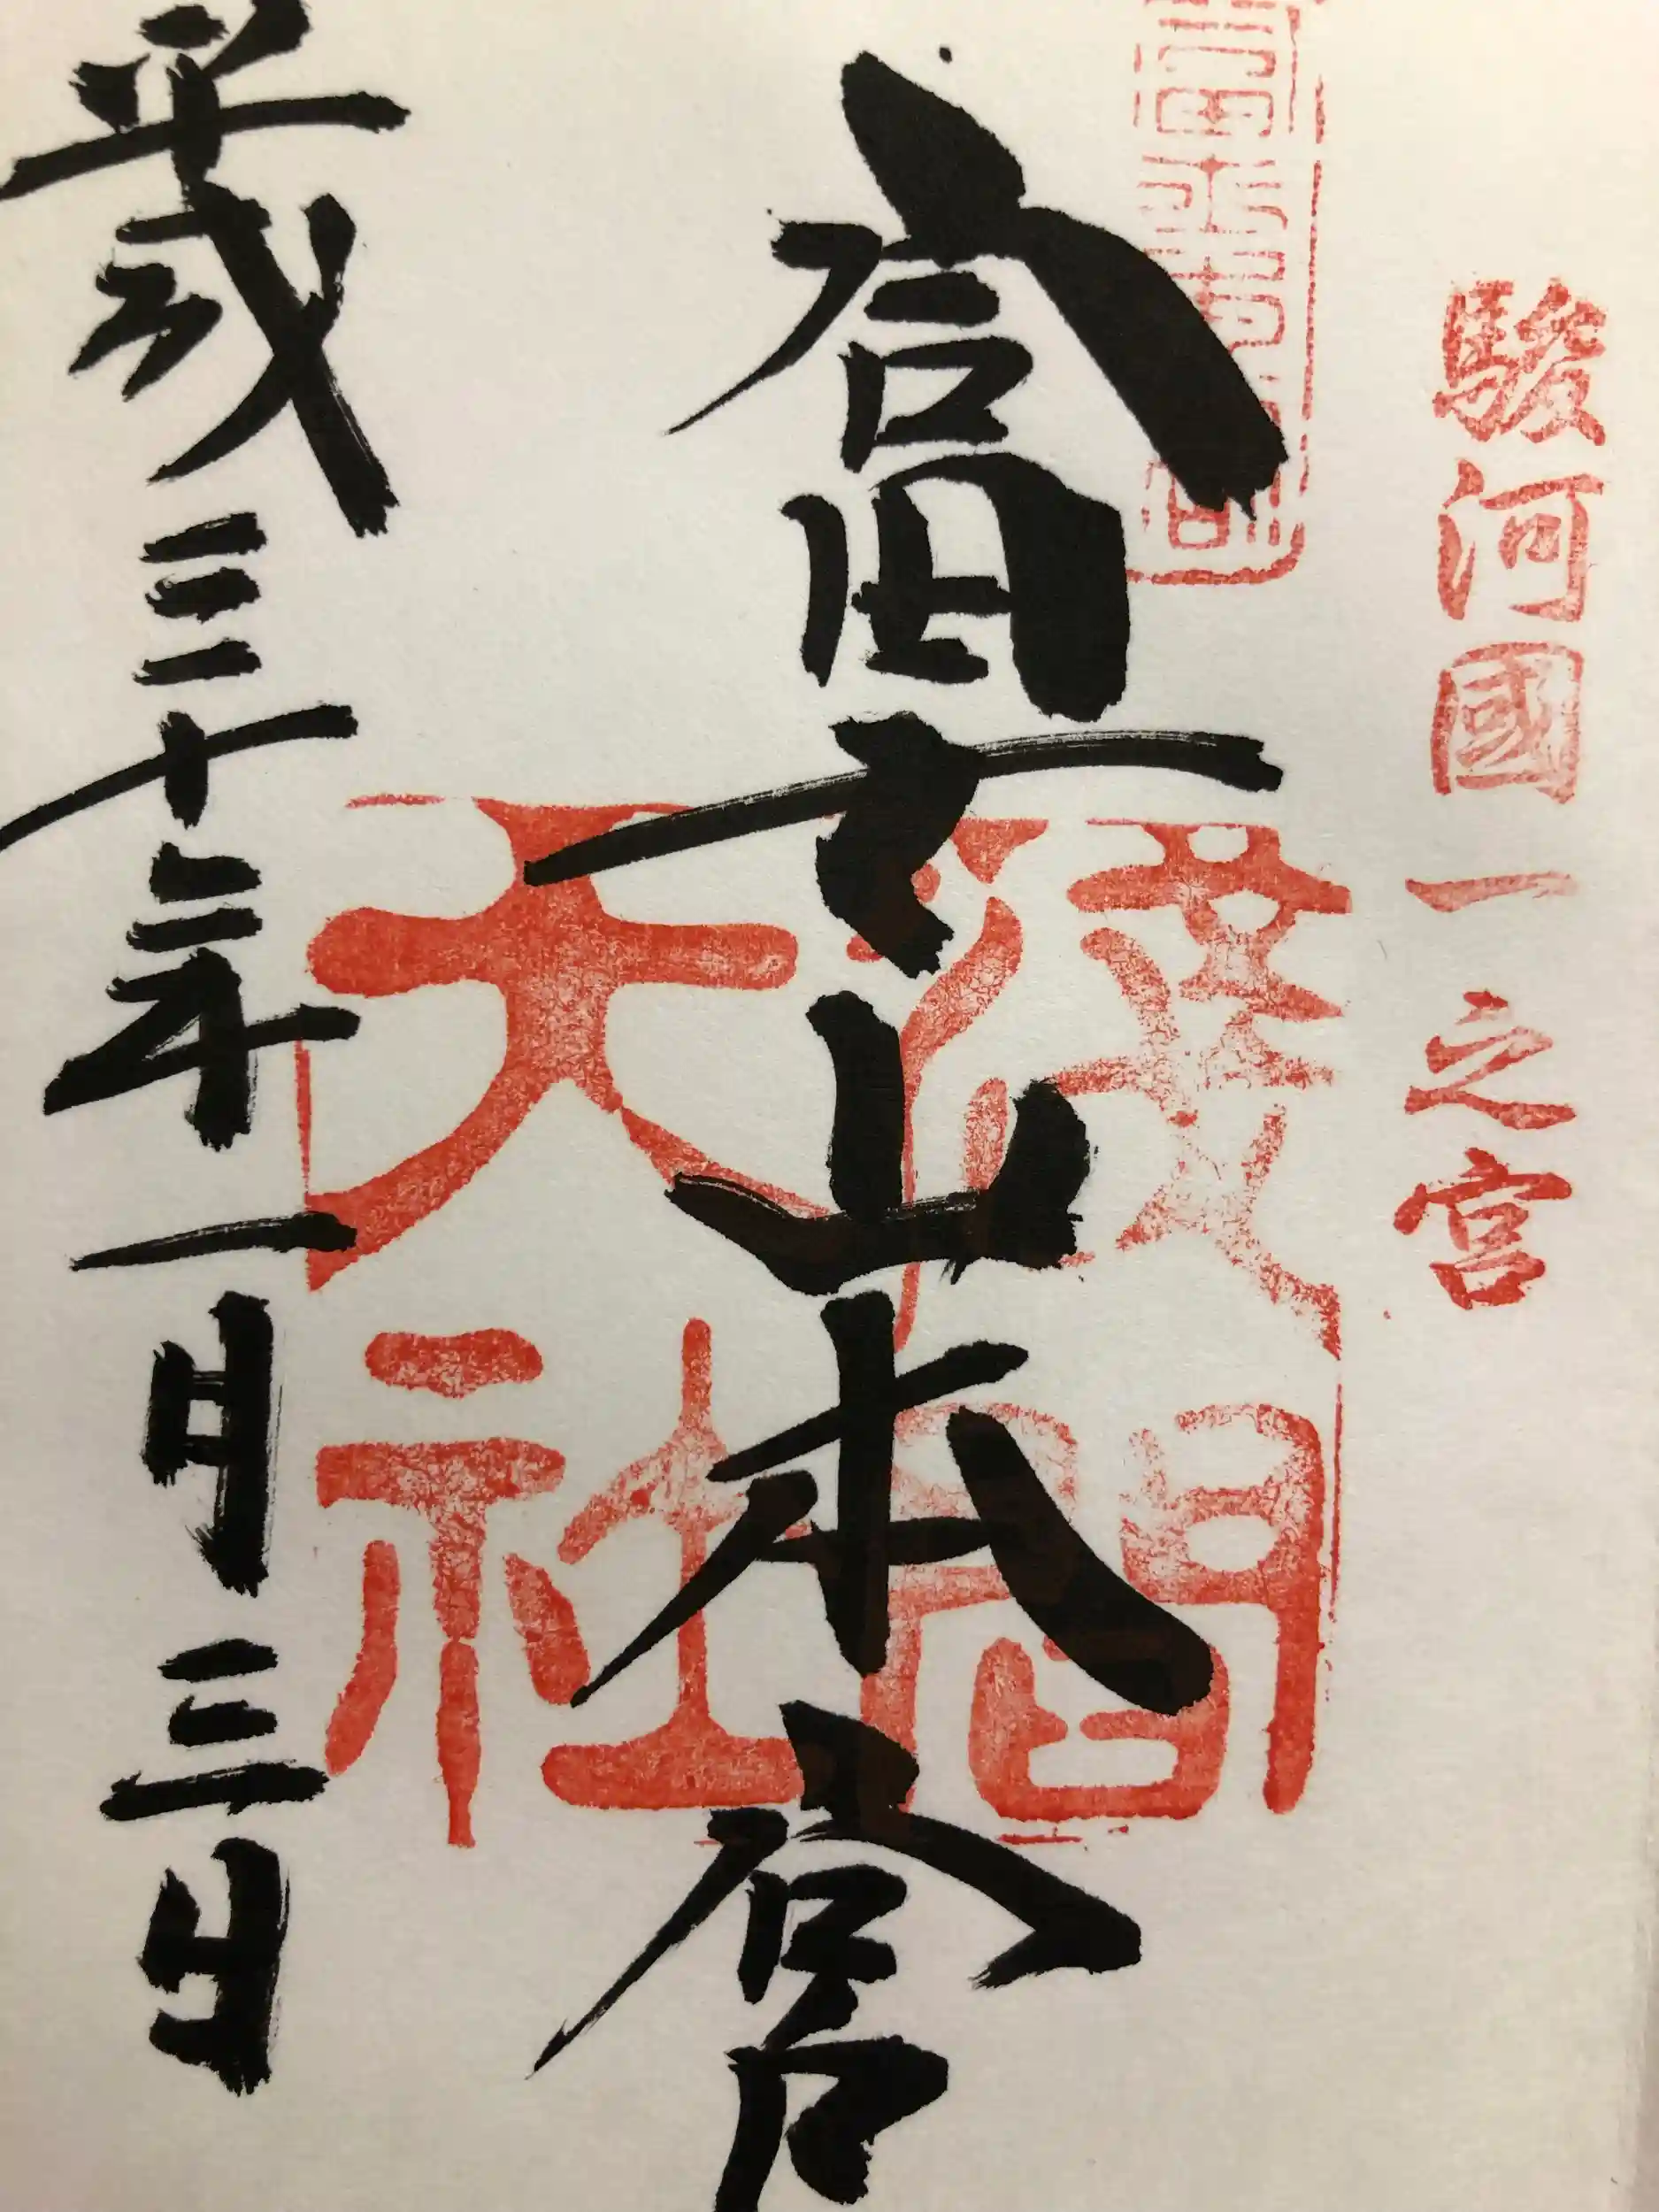 駿河國一之宮
富士山本宮
淺間
大社
平成三十年一月三日